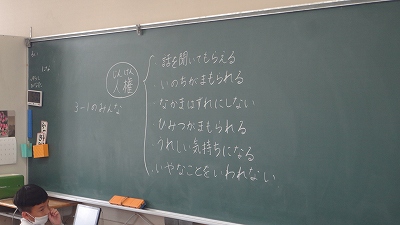 じんけん
人権
3-1のみんな
・話を聞いてもらえる
・いのちがまもられる
・なかまはずれにしない
・ひみつがまもられる
・うれしい気持ちになる
・いやなことをいわれない